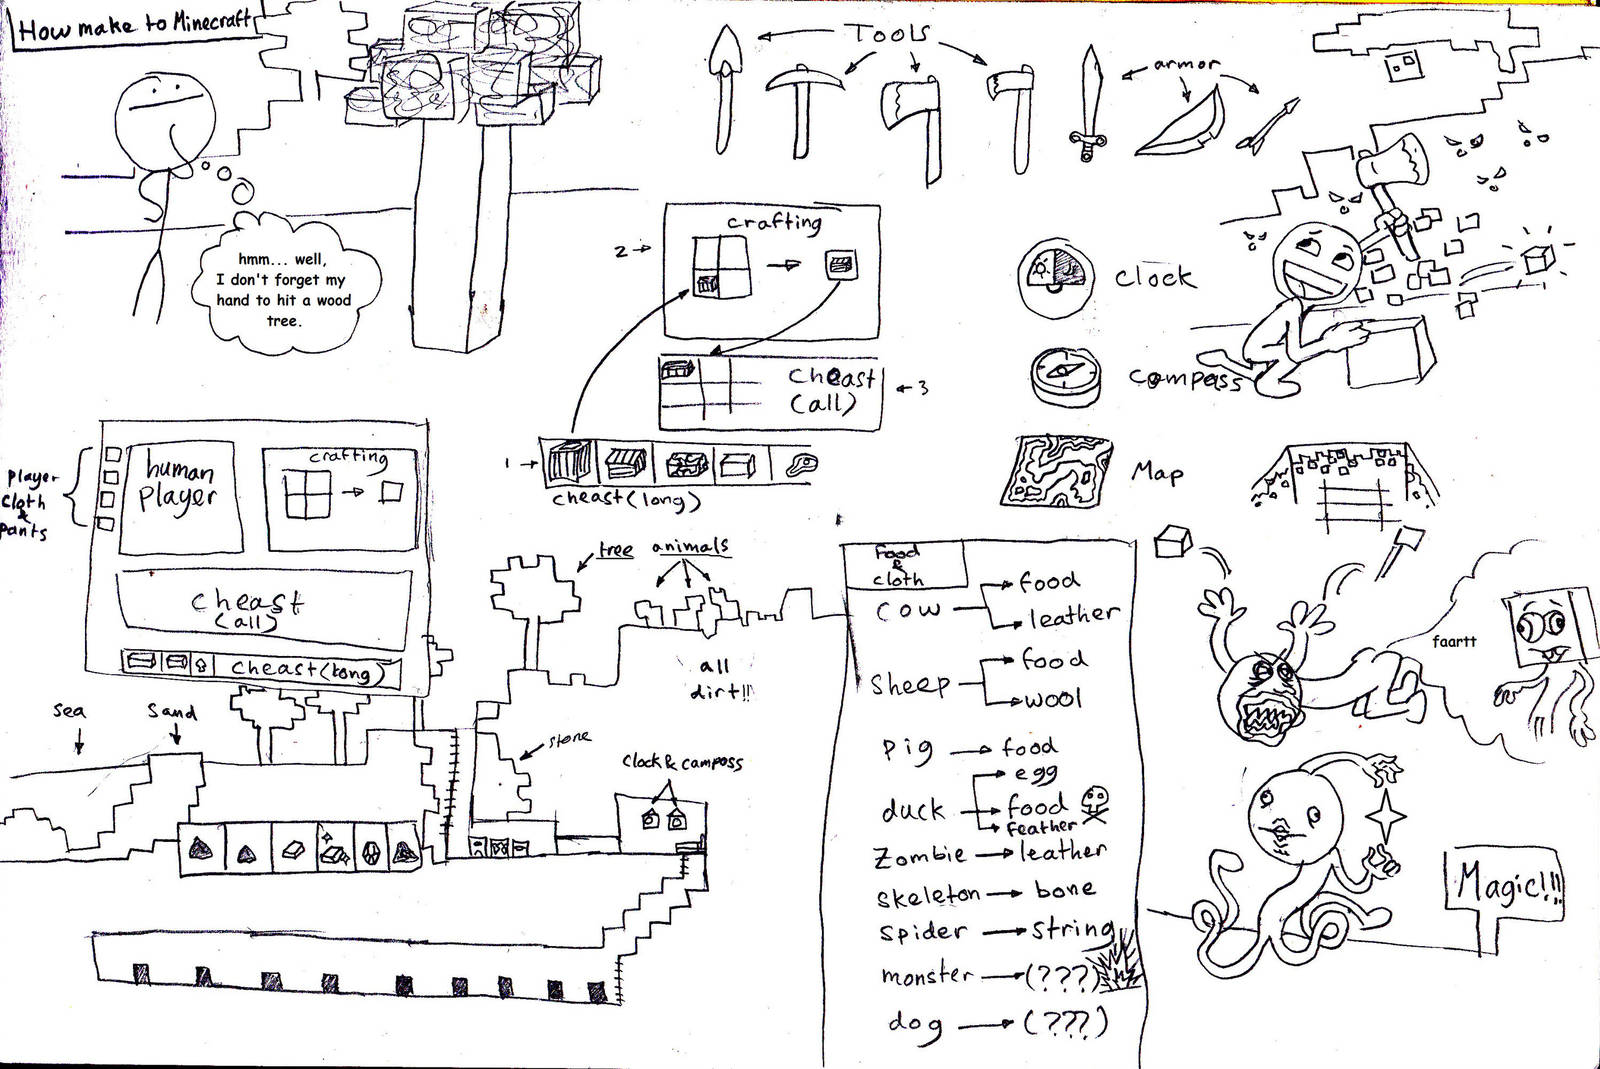 How make to Minecraft
hmm... well,
I don't forget my
hand to hit a wood
tree.
Tools
armor
2
crafting
cheast
(all)
3
1
cheast(long)
Clock
Compass
Map
player
cloth
&
pants
human
player
crafting
cheast
(all)
cheast(long)
tree
animals
all
dirt!!
sea
sand
stone
Clock & camposs
food
&
cloth
cow
food
leather
sheep
food
wool
pig
food
duck
egg
food
feather
Zombie
leather
skeleton
bone
spider
string
monster
(???)
dog
(???)
faartt
Magic!!!